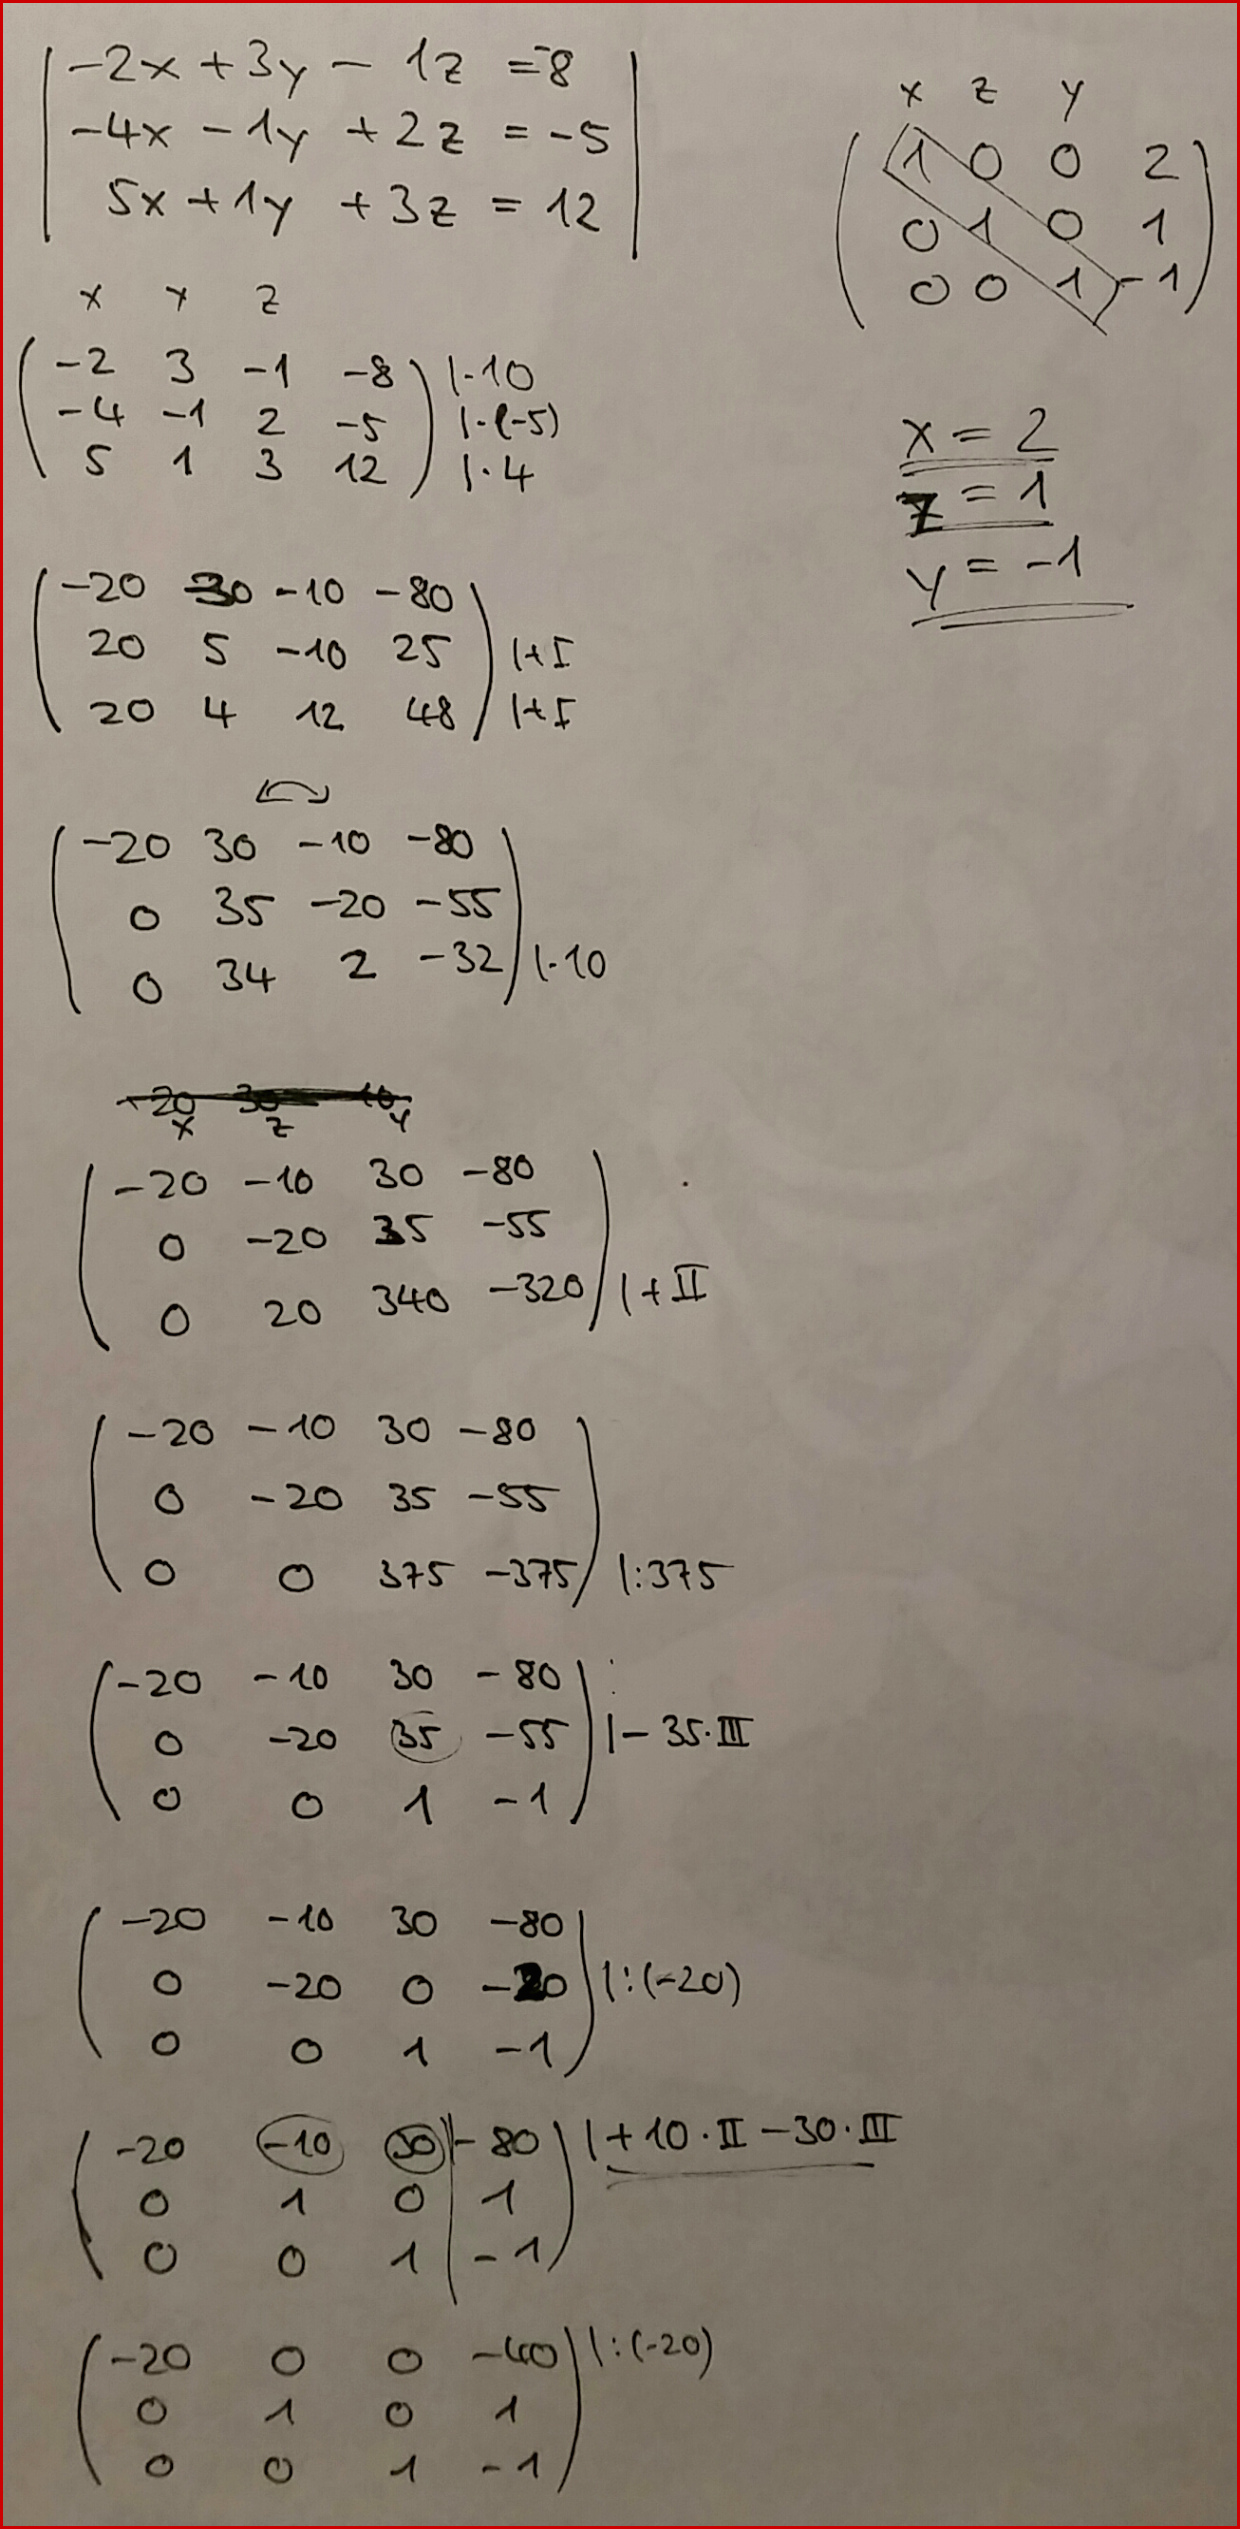 -2x + 3y - 1z = -8
-4x - 1y + 2z = -5
5x + 1y + 3z = 12
x y z
-2 3 -1 -8 | ·10
-4 -1 2 -5 | ·(-5)
5 1 3 12 | ·4
-20 30 -10 -80
20 5 -10 25 | + I
20 4 12 48 | + I
-20 30 -10 -80
0 35 -20 -55
0 34 2 -32 | ·10
x z y
-20 -10 30 -80
0 -20 35 -55
0 20 340 -320 | + II
-20 -10 30 -80
0 -20 35 -55
0 0 375 -375 | :375
-20 -10 30 -80
0 -20 35 -55 | - 35·III
0 0 1 -1
-20 -10 30 -80
0 -20 0 -20 | :(-20)
0 0 1 -1
-20 -10 30 | -80 | +10·II - 30·III
0 1 0 | 1
0 0 1 | -1
-20 0 0 -40 | :(-20)
0 1 0 1
0 0 1 -1
x z y
1 0 0 2
0 1 0 1
0 0 1 -1
x = 2
z = 1
y = -1